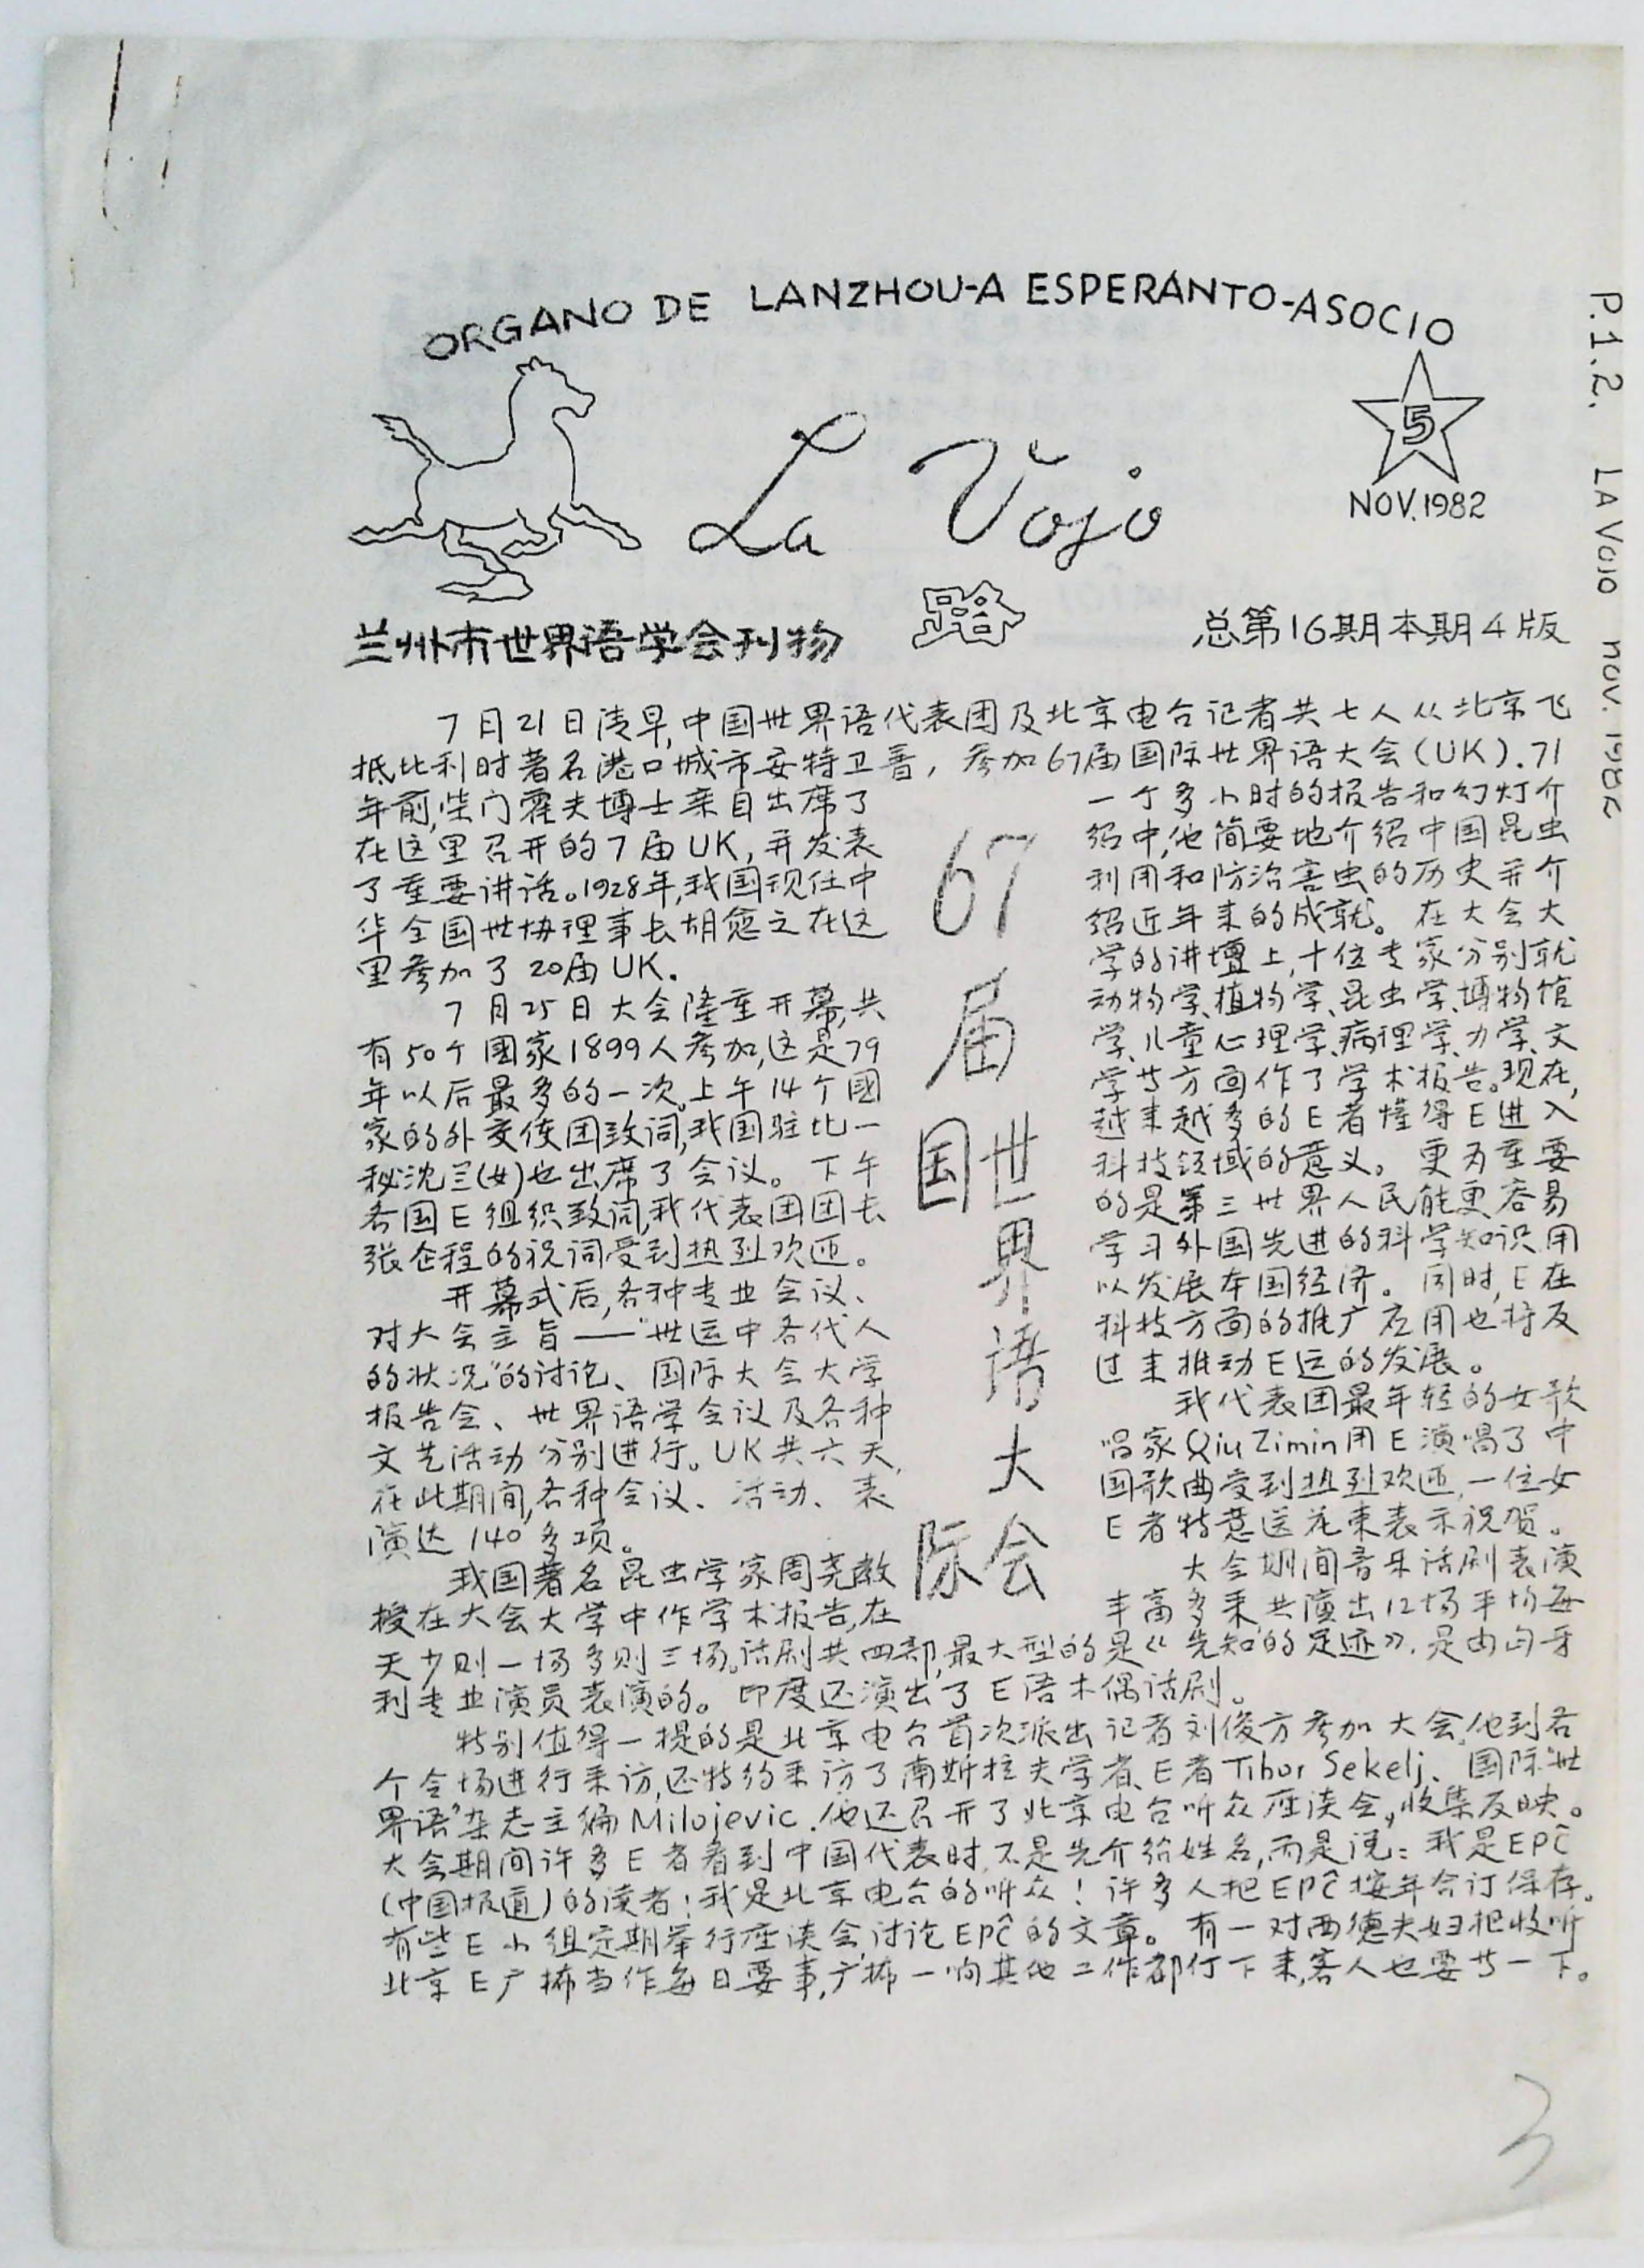 ORGANO DE LANZHOU-A ESPERANTO-ASOCIO
La Vojo
5
NOV.1982
路
兰州市世界语学会刊物
总第16期本期4版
P.1.2. LA VOJO NOV. 1982
67届国际世界语大会
7月21日清早,中国世界语代表团及北京电台记者共七人从北京飞
抵比利时著名港口城市安特卫普,参加67届国际世界语大会(UK).71
年前,柴门霍夫博士亲自出席了
在这里召开的7届UK,并发表
了重要讲话。1928年,我国现任中
华全国世协理事长胡愈之在这
里参加了20届UK.
7月25日大会隆重开幕,共
有50个國家1899人参加,这是79
年以后最多的一次。上午14个國
家的外交使团致词,我国驻比一
秘沈三(女)也出席了会议。下午
各国E组织致词,我代表团团长
张企程的祝词受到热烈欢迎。
开幕式后,各种专业会议、
对大会主旨——“世运中各代人
的状况”的讨论、国际大会大学
报告会、世界语学会议及各种
文艺活动分别进行。UK共六天,
在此期间,各种会议、活动、表
演达140多项。
我国著名昆虫学家周尧教
授在大会大学中作学术报告,在
一个多小时的报告和幻灯介
绍中,他简要地介绍中国昆虫
利用和防治害虫的历史并介
绍近年来的成就。在大会大
学的讲坛上,十位专家分别就
动物学、植物学、昆虫学、博物馆
学、儿童心理学、病理学、力学、文
学等方面作了学术报告。现在,
越来越多的E者懂得E进入
科技领域的意义。更为重要
的是第三世界人民能更容易
学习外国先进的科学知识用
以发展本国经济。同时,E在
科技方面的推广应用也将反
过来推动E运的发展。
我代表团最年轻的女歌
唱家Qiu Zimin用E演唱了中
国歌曲受到热烈欢迎,一位女
E者特意送花束表示祝贺。
大会期间音乐话剧表演
丰富多采,共演出12场平均每
天少则一场多则三场。话剧共四部,最大型的是《先知的足迹》.是由匈牙
利专业演员表演的。印度还演出了E语木偶话剧。
特别值得一提的是北京电台首次派出记者刘俊方参加大会,他到各
个会场进行采访,还特约采访了南斯拉夫学者、E者Tibor Sekelj、国际“世
界语”杂志主编Milojevic.他还召开了北京电台听众座谈会,收集反映。
大会期间许多E者看到中国代表时,不是先介绍姓名,而是说:我是EPĈ
(中国报道)的读者!我是北京电台的听众!许多人把EPĈ按年合订保存。
有些E小组定期举行座谈会,讨论EPĈ的文章。有一对西德夫妇把收听
北京E广播当作每日要事,广播一响其他工作都停下来,客人也要等一下。
3